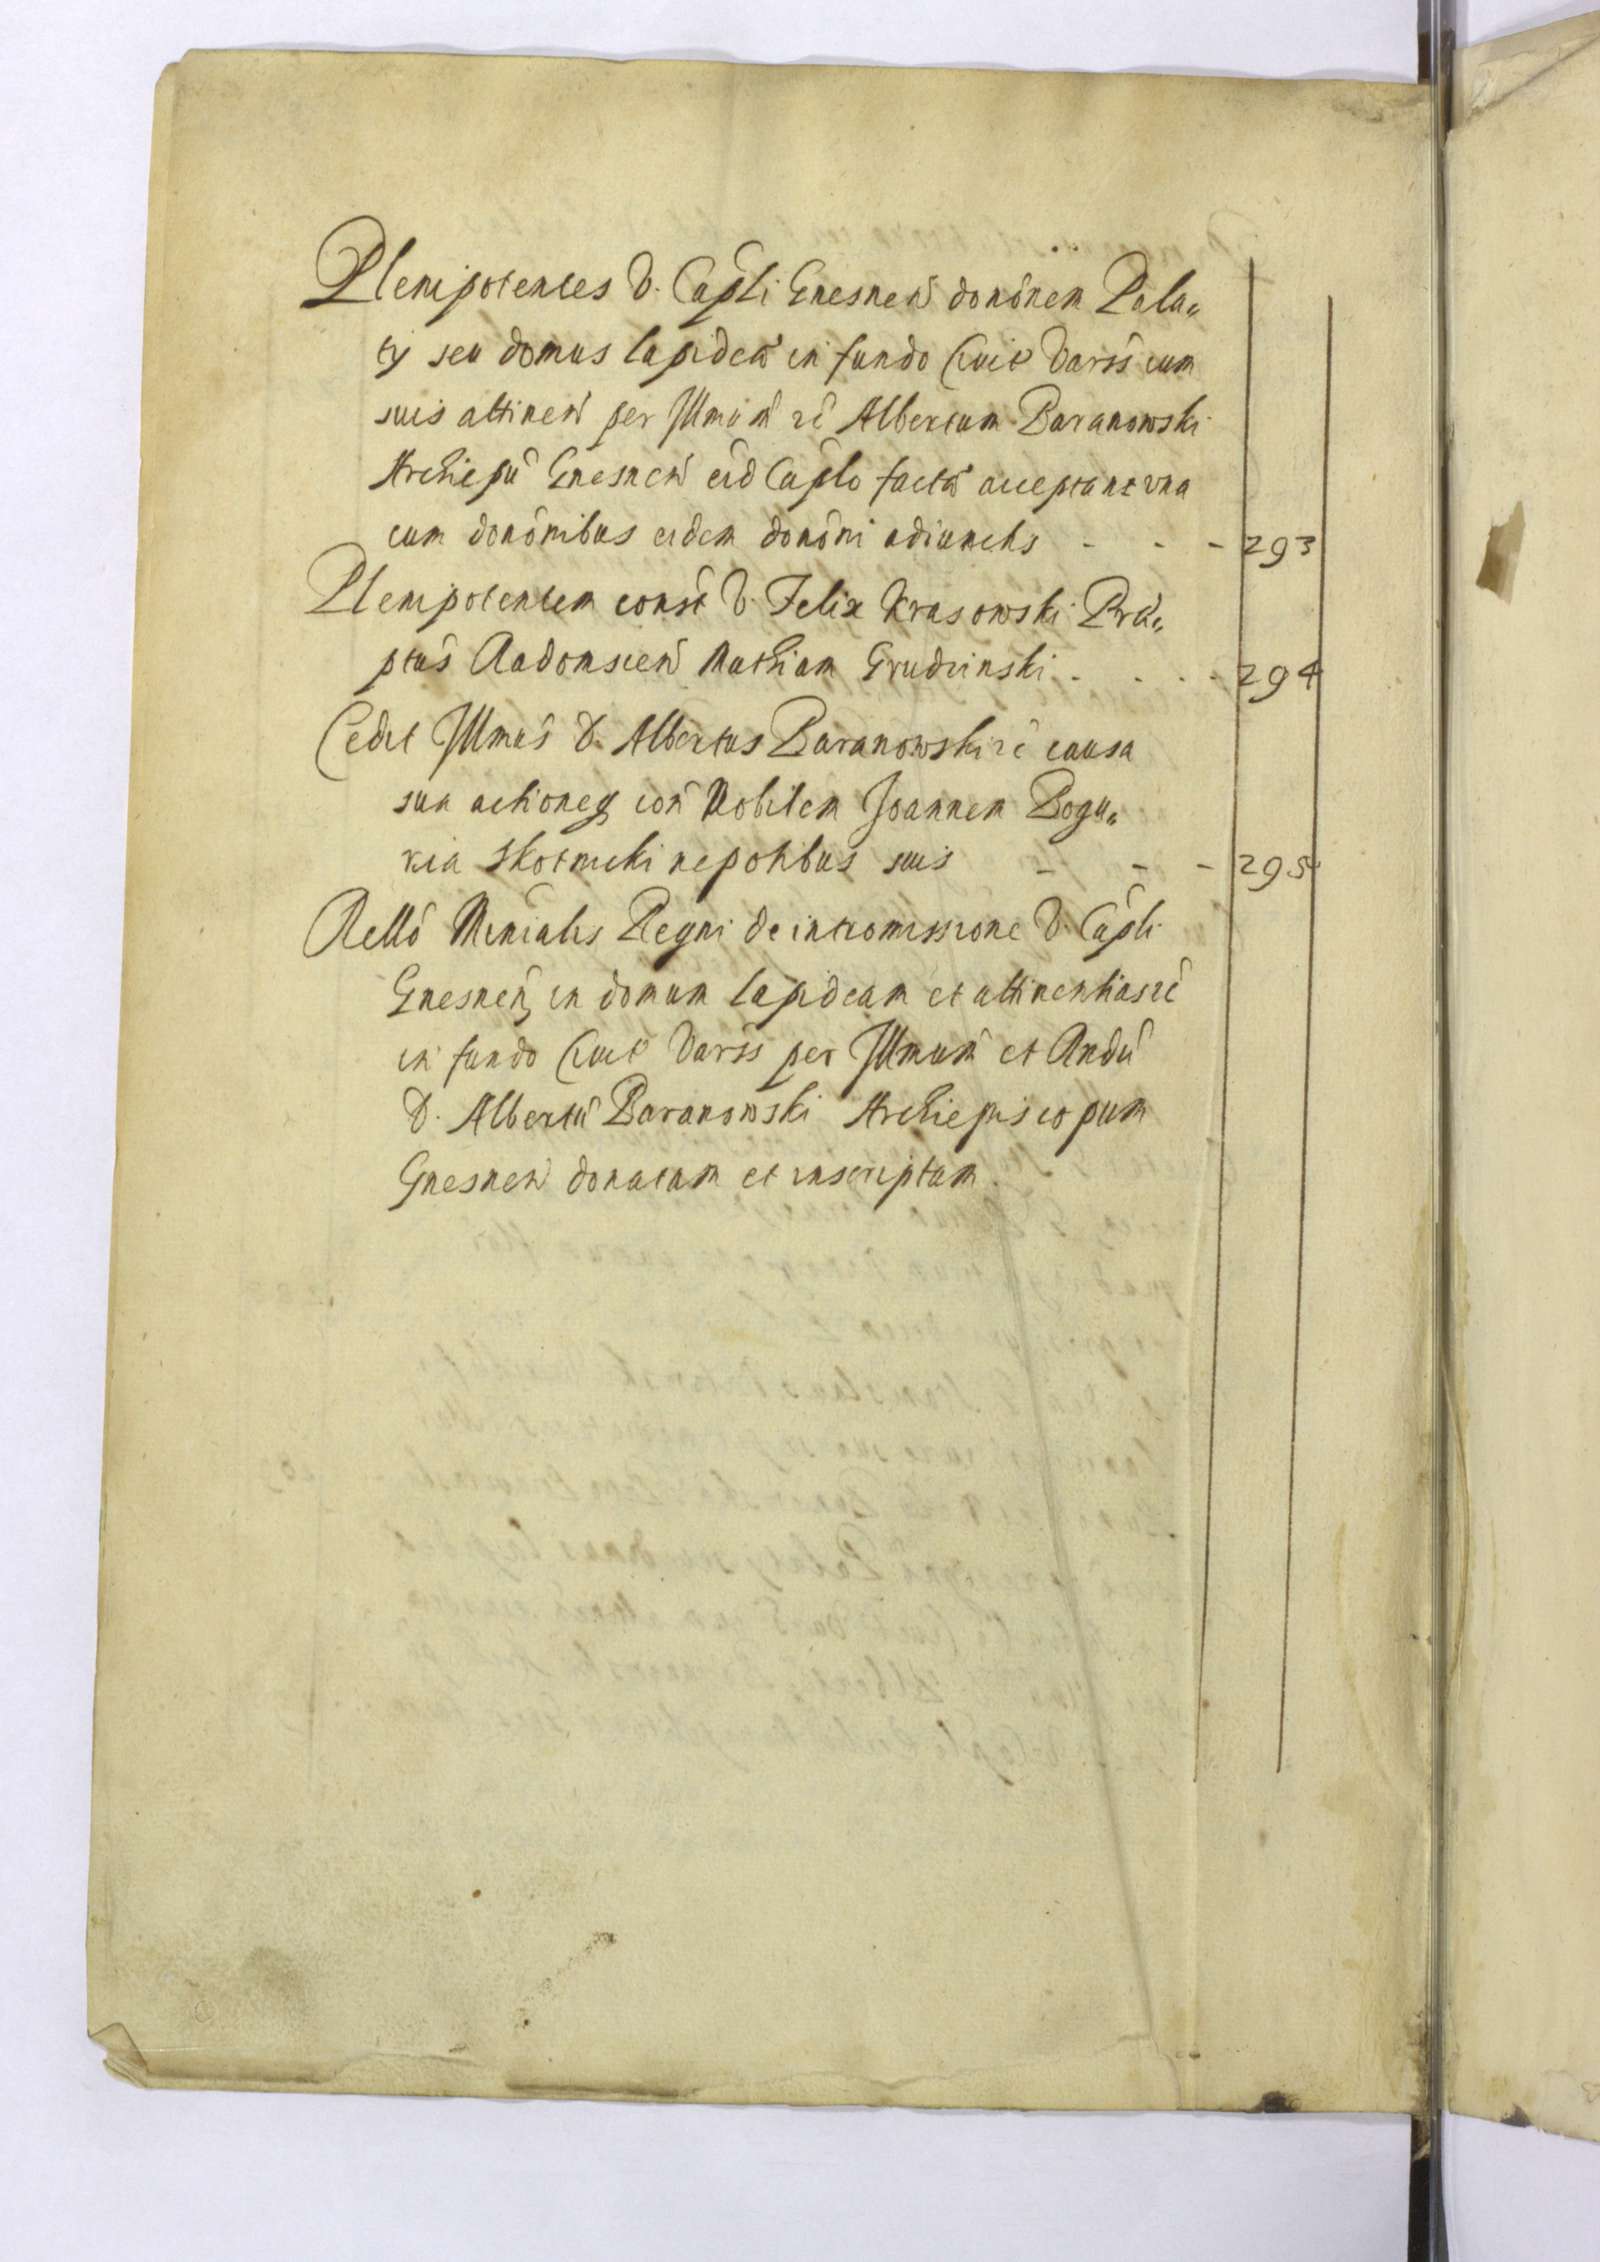 Plenipotentes V. Capli Gnesnen donõnem Pala„
ty seu domus lapideæ in fundo Civit Varss cum
suis attinen per Illmum rc Albertum Baranowski
Archiepũ Gnesnen eid Caplo factã acceptant una
cum donõnibus eidem donõni adiunctis - - - 293
Plenipotentem const V. Felix Krasowski Præ„
ptus Radomscien Mathiam Grudzinski . . . . 294
Cedit Illmus D. Albertus Baranowski rc causa
sua actioneq con Nobilem Joannem Bogu„
ria Skotnicki nepotibus suis - - - 295
Rello Minialis Regni de intromissione V. Capli
Gnesnen in domum lapideam et attinentias rc
in fundo Civit Varss per Illmum et Rndũ
D. Albertũ Baranowski Archiepiscopum
Gnesnen donatam et inscriptam